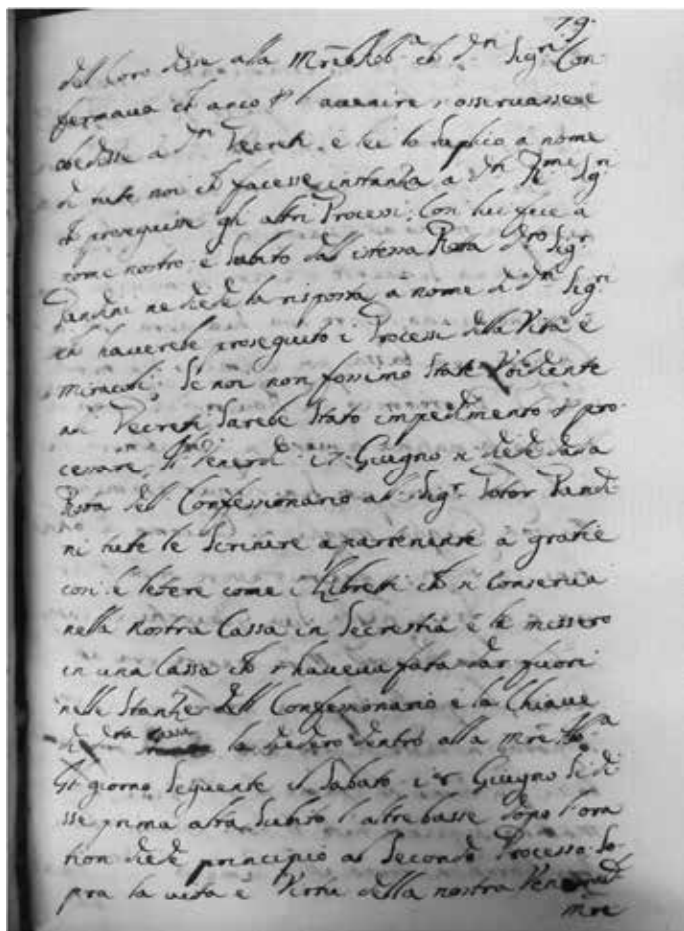 79.
dell loro disse alla Mre ch d.n Sig.ri Con
fermaua ch anco l auenire s osseruassere
obedisse a d.n Decreti. e lei lo suplico a nome
di tute noi ch facesse instanza a d.n R.mi Sig.ri
ch proseguisse gli altri Processi, Con lui fece a
nome nostro e Subito dall istessa d.to Sig.r
Pandini ne diede la risposta a nome d d.n Sig.ri
ch hauerebe proseguito i Processi della Vita e
miracoli. Se noi non fossimo State Vbidiente
ai Decreti Sarebe Stato impedimento pro-
cessare, Venerdi 17 Giugno si diede dala
dell Confessionario al Sig.r Dotor Pandi
ni tute le Scriture apartenente a gratie
con e letere come i Libreti ch si Conserua
nella Nostra Cassa in Secrestia e le missero
in una Cassa ch s haueua fata dar fuori
nelle Stanze dell Confessionario e la Chiaue
di d.ta cassa la diedero dentro alla Mre
Gl giorno Seguente il Sabato 18 Giugno Si di
sse prima Subito l dopo l ora
tion diede principio al Secondo Processo So-
pra la uita e Virtu della nostra Vener.nd
mre